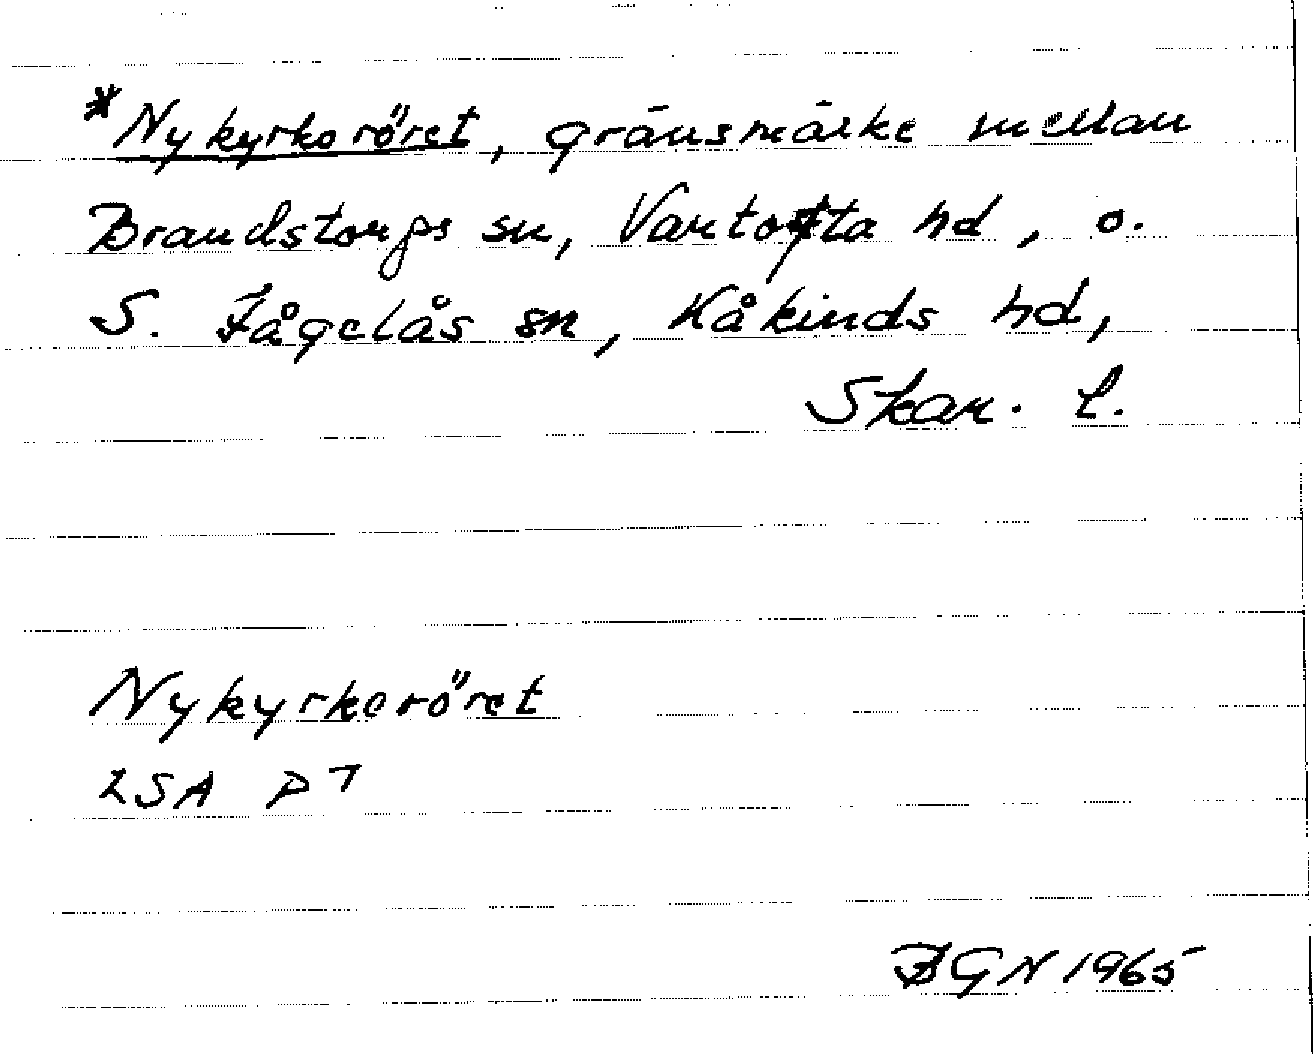 *Nykyrkoröret, gränsmärke mellan
Brandstorps sn, Vartofta hd, o.
S. Fågelås sn, Kåkinds hd,
Skar. l.
Nykyrkoröret
LSA P7
BGN 1965